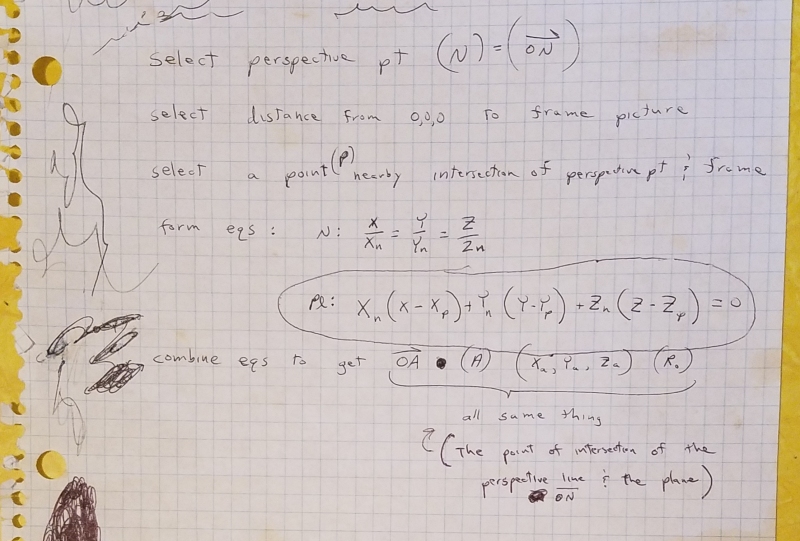 Select perspective pt (N) = (ON)
select distance from 0,0,0 to frame picture
select a point (P) nearby intersection of perspective pt & frame
form eqs : N: X/Xn = Y/Yn = Z/Zn
Pl: Xn(X-Xp) + Yn(Y-Yp) + Zn(Z-Zp) = 0
combine eqs to get OA • (A) (Xa, Ya, Za) (R₀)
all same thing
(The point of intersection of the
perspective line & the plane)
ON